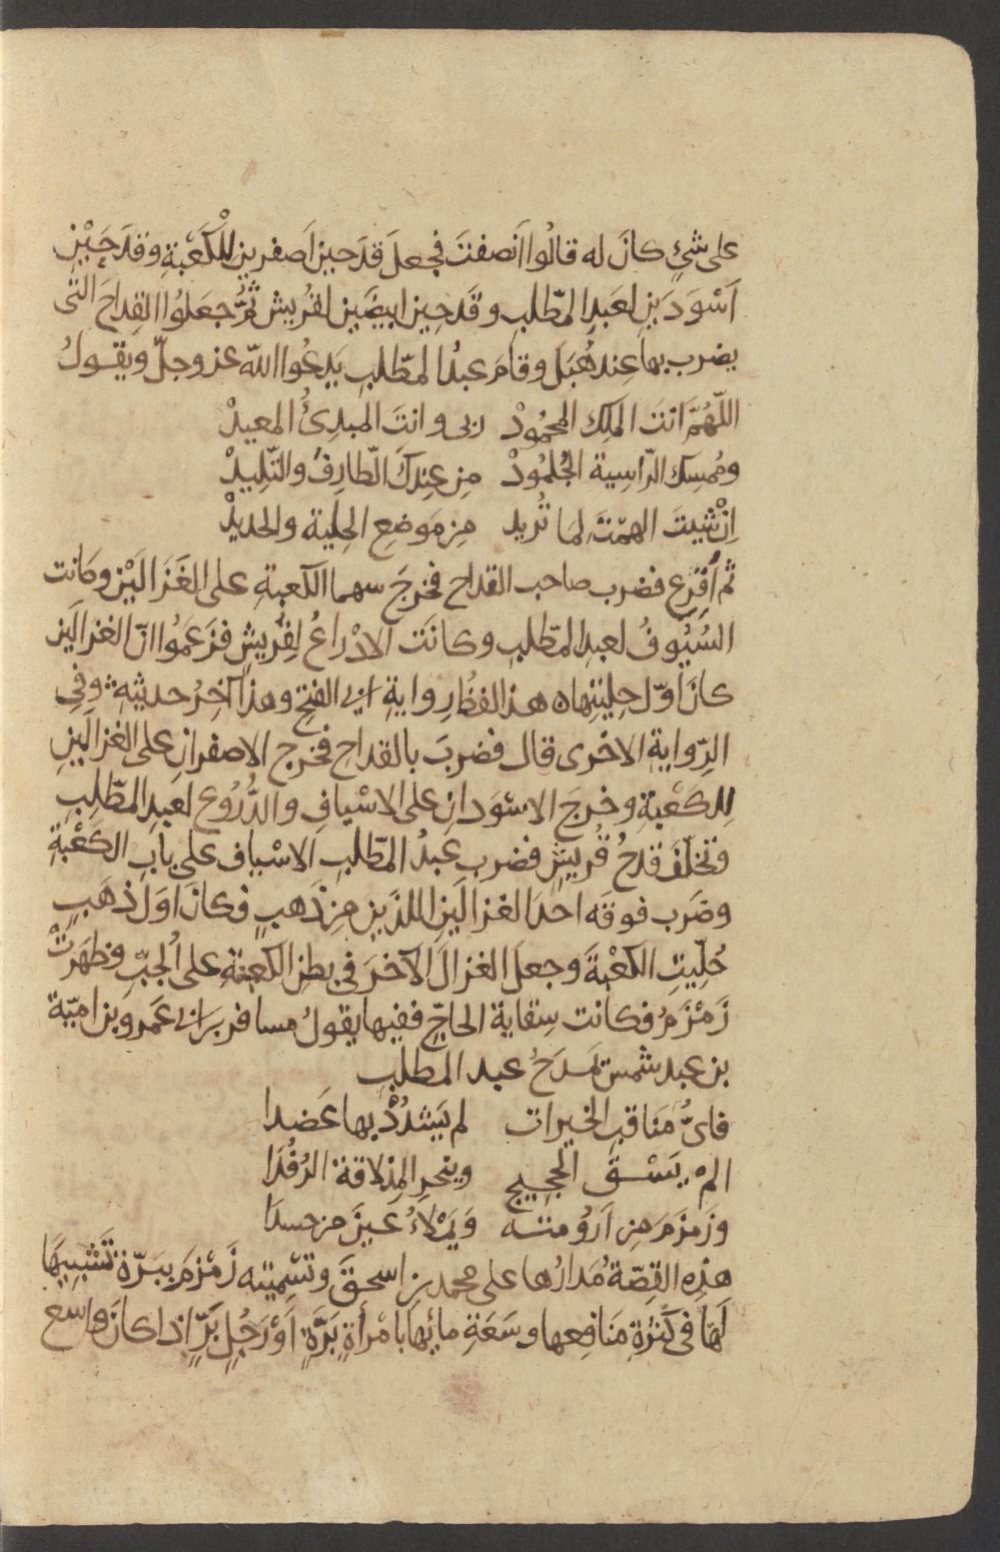 على شئٍ كانَ له قالُوا اَنصفتَ فجعلَ قدَحين اَصفرين لِلْكَعْبَةِ وَقدَحَيْنِ
اَسْوَدَينِ لعَبدِ المطّلبِ وقَدحين ابيضَين لقُريش ثمَّ جعَلوُا القِداحَ التى
يضرب بها عِند هُبَل وقامَ عبدُ المطّلبِ يَدعُوا اللّه عز وجلّ ويقـولُ
اللّهُمّ اَنتَ المَلِك المحْمُودْ ربى وانتَ المبدِئُ المعيدْ
ومُمسك الرّاسِية الجُلمُودْ مِن عِندكَ الطّارِفُ والتّلِيدْ
اِنْ شيتَ الهمْتَ لما تُريد مِن مَوضعِ الحِلية والحديدْ
ثم اُقرِع فضرب صاحب القداح فخرجَ سهما الكعبةِ على الغَزَاليْن وكَانت
السُيُوفُ لعبدِ المطّلبِ وكانَت الادْراعُ لِقُريشٍ فزَعَمُوا انّ الغزالَين
كانَ اوّل حِليتِها ه هذا لفظُ رِوايةِ ابى الفتحِ وهذا آخِرُ حديثِهِ وفى
الرِّوايةِ الاخرى قال فضربَ بالقداحِ فخرج الاصفرانِ على الغزالَينِ
لِلكعْبةِ وخرجَ الاسْوَدانِ على الاسْيافِ والدُّرُوعِ لعَبدِ المطّلِبِ
وتخلّفَ قدحُ قُريشٍ فضرب عبدُ المطّلبِ الاسْيافَ على بابِ الكَعْبَةِ
وضَرب فوقَه احدَ الغزالَينِ اللذَينِ مِن ذَهبٍ فكانَ اوّلَ ذهَبٍ
حُلّيتِ الكعْبةُ وجعلَ الغزالَ الآخرَ فى بطن الكعبةِ على الجُبِّ وظهَرتْ
زَمْزَمُ فكانت سِقاية الحاجّ ففيها يقولُ مسافر بن ابى عَمرو بن اميّة
بن عبد شمس يمدَحُ عبد المطلب
فاىُّ مَناقب الخيرات لم يَشدُدْ بها عَضدا
الم يَسْـقِ الحجيج وينحر المِذلاقة الرُفُدَا
وزمزمَ مِن ارُومتـه وَيمْلاءُ عَينَ من حسدَا
هذِه القِصّة مَدارُها على محمد بن اسحقَ وتسْمِيته زَمْزمَ ببَرّة تَشْبيهًا
لهَا فى كَثرةِ مَنافِعها وسَعَةِ مائِها بامْرأةٍ بَرَّةٍ اَوْ رَجُلٍ بَرٍّ اذا كانَ واسع